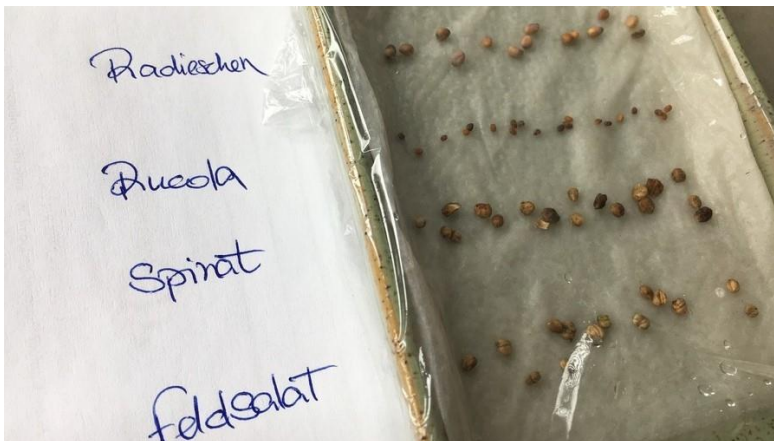 Radieschen
Rucola
Spinat
Feldsalat